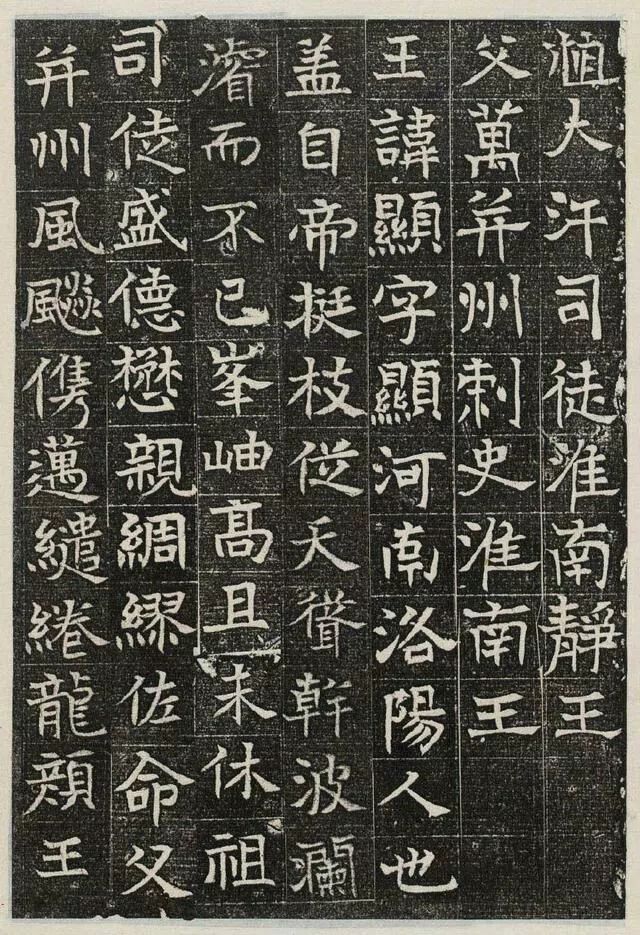 大汗司徒淮南靜王
父萬并州刺史淮南王
王諱顯字顯河南洛陽人也
盖自帝挺枝從天聳幹波瀾
濬而不已峯岫髙且未休祖
司徒盛德懋親綢繆佐命父
并州風飇儁邁繾綣龍顏王